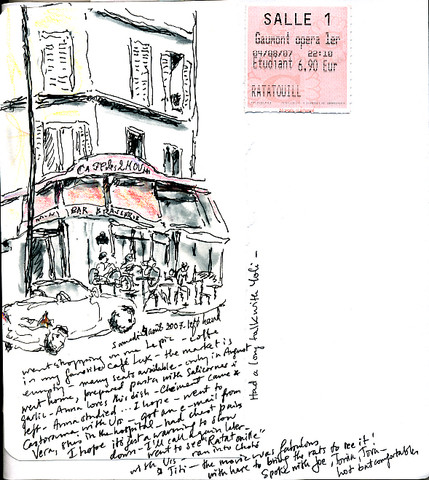 SALLE 1
Gaumont opera 1er
04/08/07 22:10
Etudiant 6,90 Eur
RATATOUILL
CAFE DES 2 MOULINS
BAR BRASSERIE
samedi 4 août 2007. left hand
went shopping on rue Lepic - coffee
in my favorite café Lux - the market is
empty - many seats available - only in August
went home, prepared pasta with salicornes &
garlic - Anna loves this dish - Clément came &
left - Anna studied - I hope - went to
Castorama with Urs - Got an e-mail from
Vera, she's in the hospital - had chest pains
I hope it's just a warning to slow
down - I'll call again later -
went to see "Ratatouille"
with Urs - ran into Chris
& Titi - the movie was fabulous
with here to bring the rats to see it!
Spoke with Joe, Torn -
hot but comfortable
Had a long talk with Yoli -